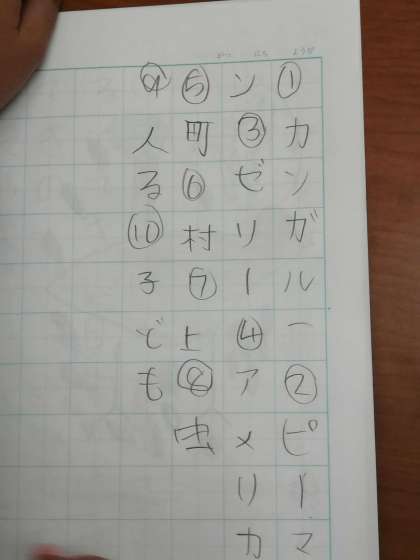 がつ にち ようび
①カンガルー②ピーマ
ン③ゼリー④アメリカ
⑤町⑥村⑦上⑧虫
⑨人る⑩子ども